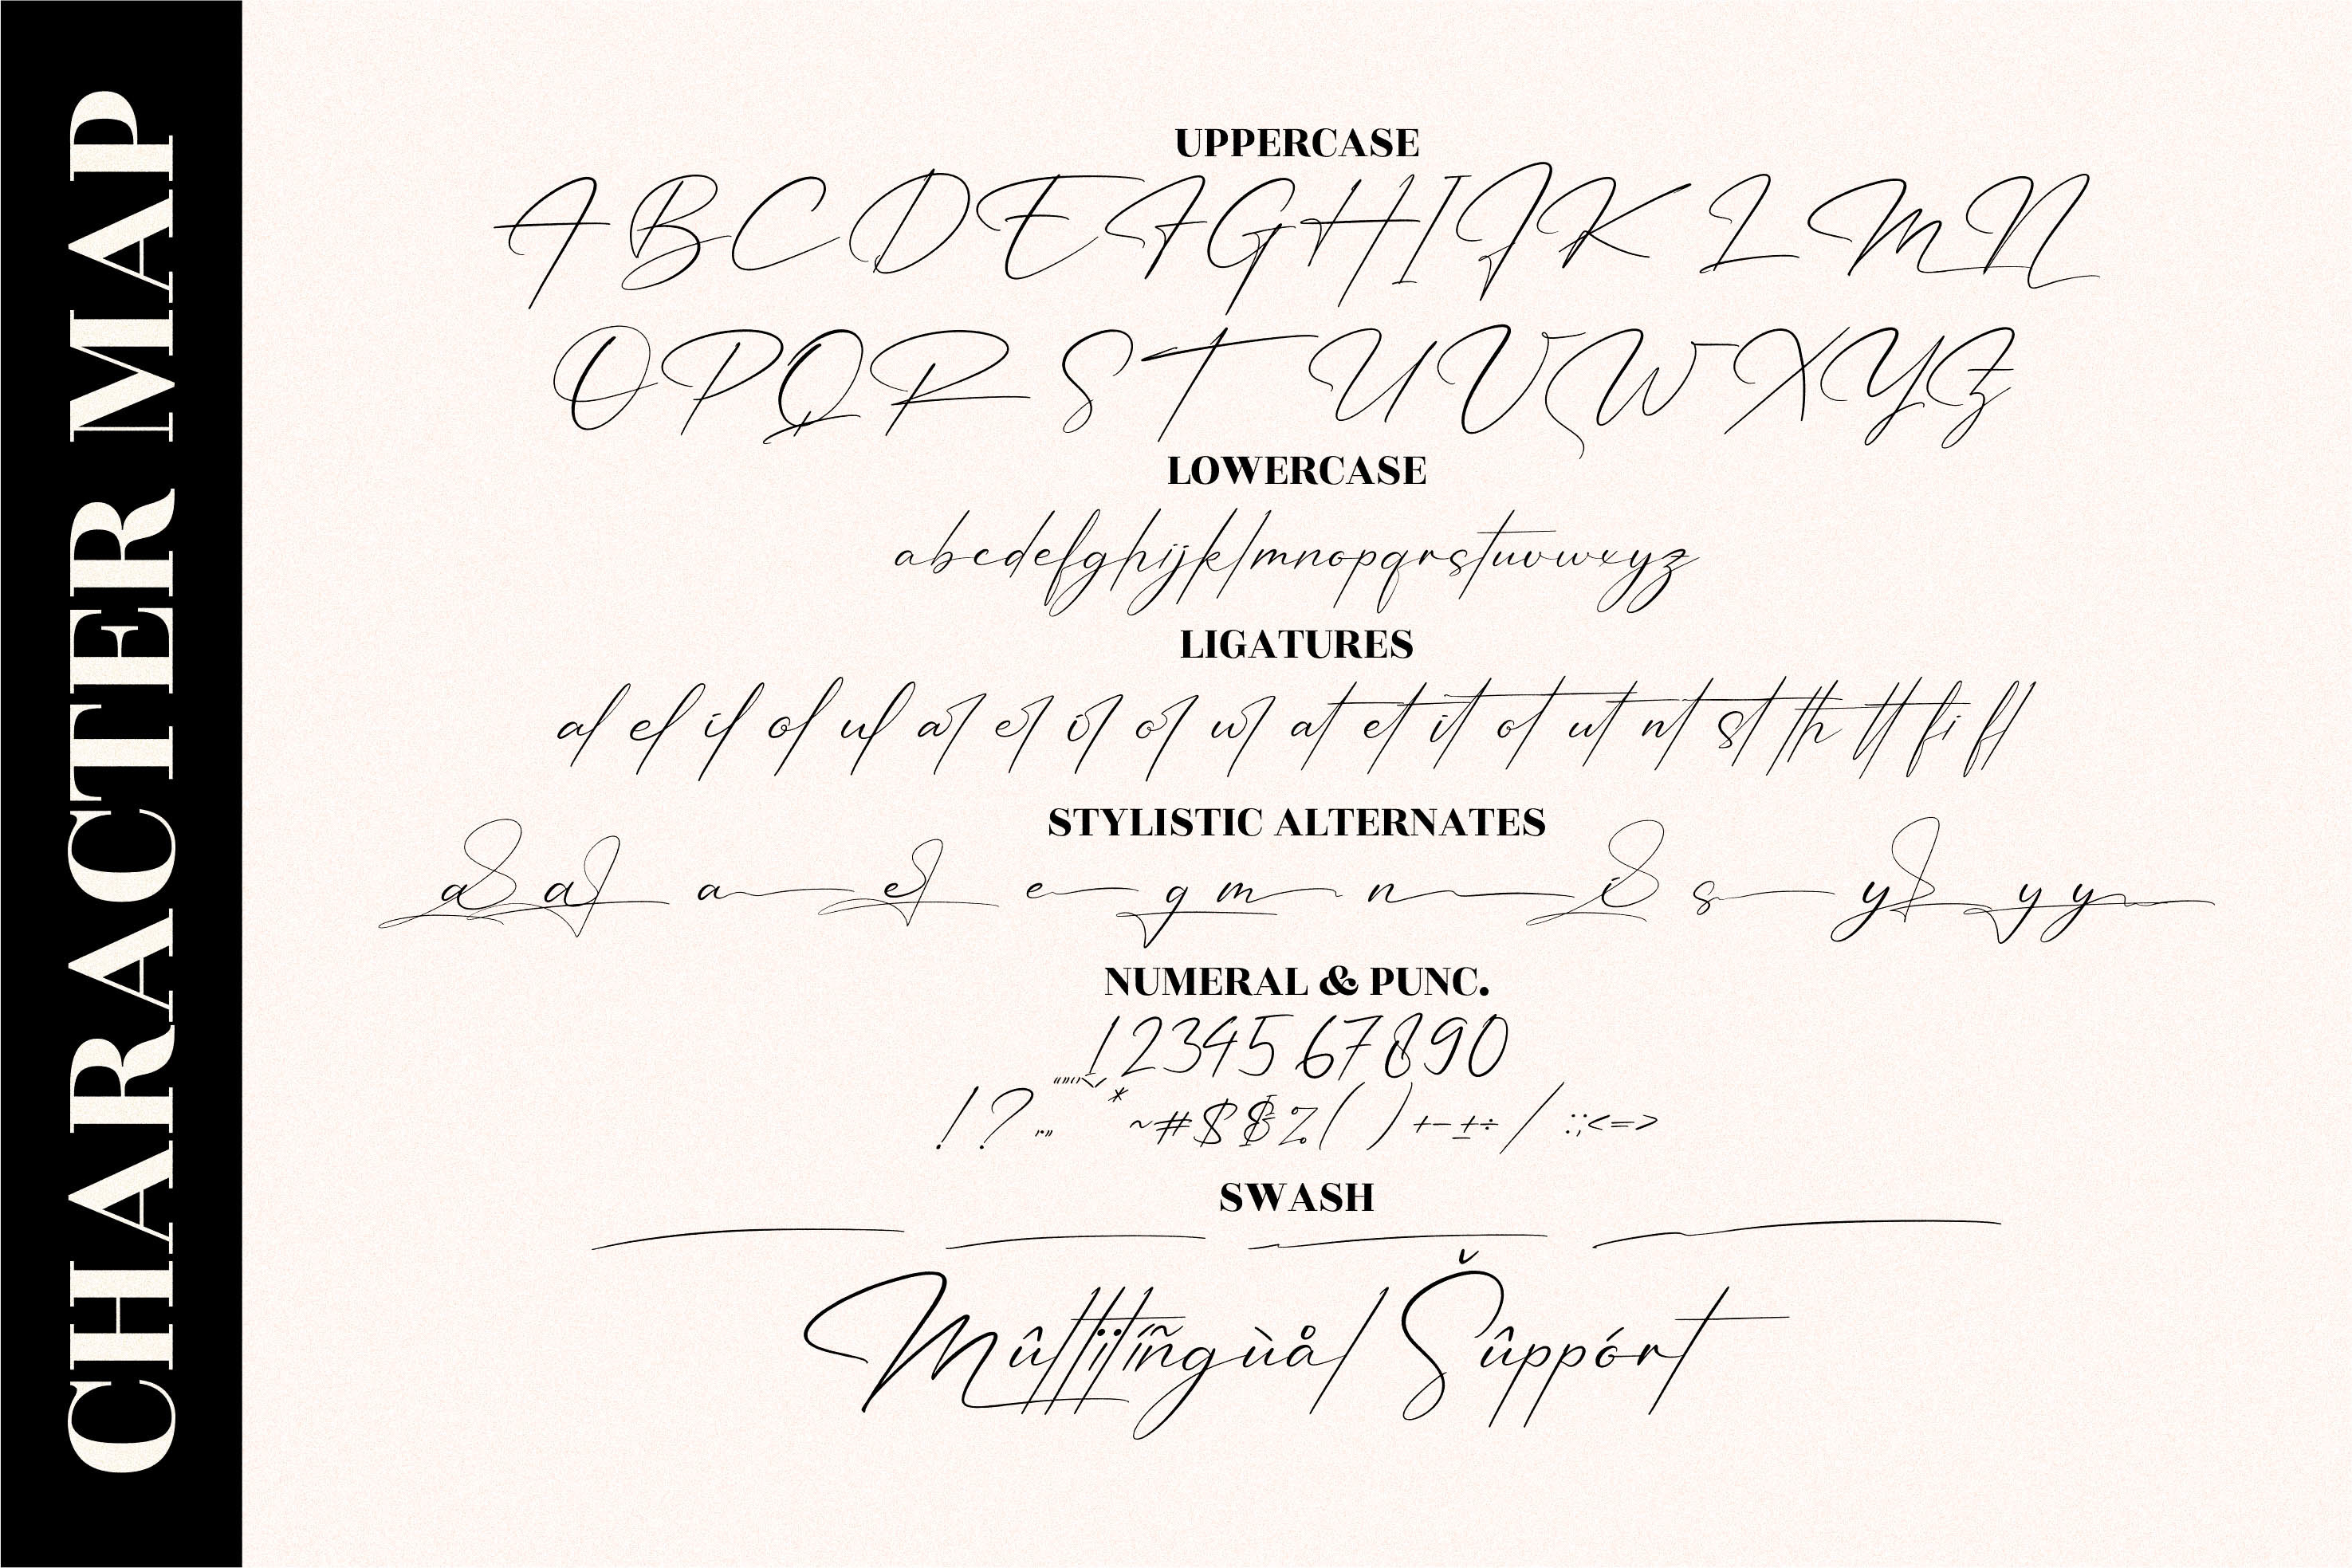 CHARACTER MAP
UPPERCASE
A B C D E F G H I J K L M N
O P Q R S T U V W X Y Z
LOWERCASE
abcdefghijklmnopqrstuvwxyz
LIGATURES
al el il ol ul at et it ot ut nt st th tt fi fl
STYLISTIC ALTERNATES
a e g m n s y y y
NUMERAL & PUNC.
1234567890
! ? * ~ # $ % ( ) + - ± ÷ / : ; < = >
SWASH
Mûltitíñgùål Šûppórt